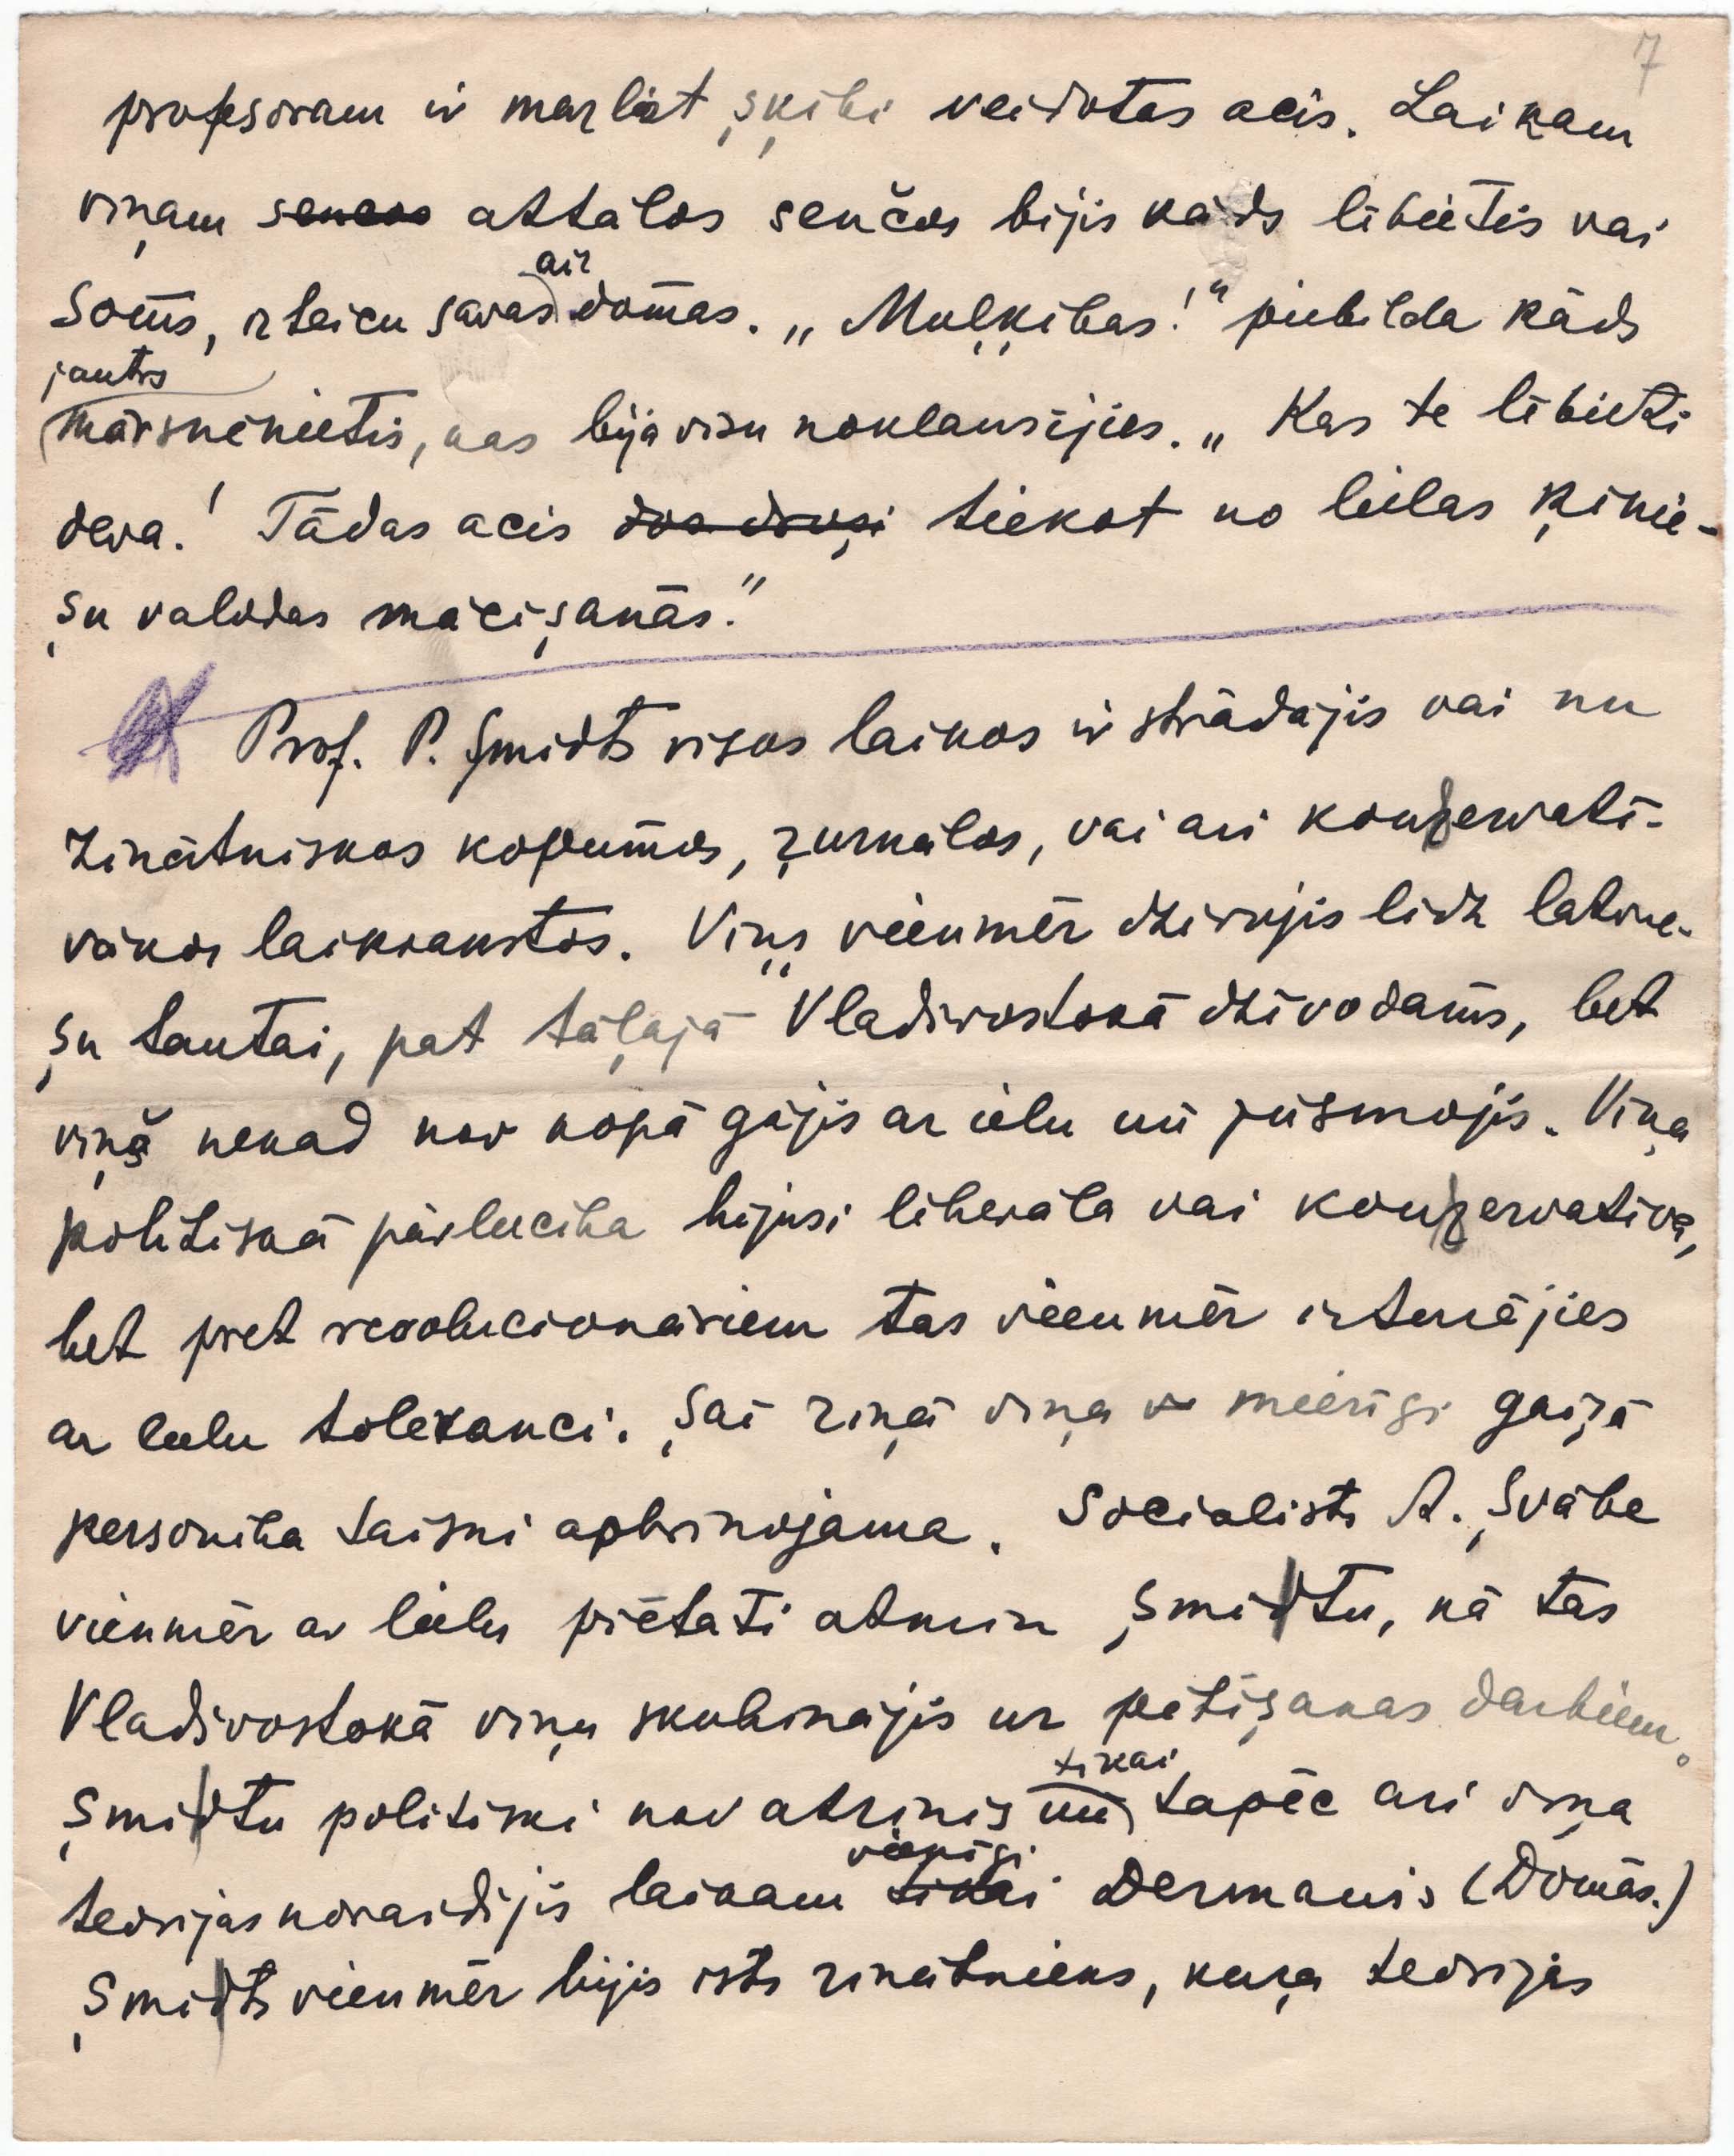 7
profesoram ir mazliet šķībi veidotas acis. Laikam
viņam attālos senčos bijis kāds lībietis vai
Soms, izteicu savas aiz domas. „Muļķības!“ piebilda kāds
jautrs
mārsnēnietis, kas bija visu noklausījies. „Kas te lībieti
deva! Tādas acis tiekot no lielas ķinie-
šu valodas mācīšanās.”
Prof. P. Šmidts visos laikos ir strādājis vai nu
zinātniskos kopumos, žurnālos, vai arī konservatī-
vākos laikrakstos. Viņš vienmēr dzīvojis līdz latvie-
šu tautai, pat tāļajā Vladivostokā dzīvodams, bet
viņš nekad nav kopā gājis ar ielu un jūsmojis. Viņa
politiskā pārliecība bijusi liberāla vai konservativa,
bet pret revolucionāriem tas vienmēr izturējies
ar lielu toleranci. Šai ziņā viņa mierīgi gaišā
personība taisni apbrīnojama. Socialists A. Švābe
vienmēr ar lielu piētāti atmin Šmitu, kā tas
Vladivostokā viņu skubinājis uz pētīšanas darbiem.
Šmitu politiski nav atzinis tikai tapēc arī viņa
teorijas noraidījis laikam vienīgi Dermanis (Domās.)
Šmits vienmēr bijis īsts zinātnieks, kuŗa teorijas